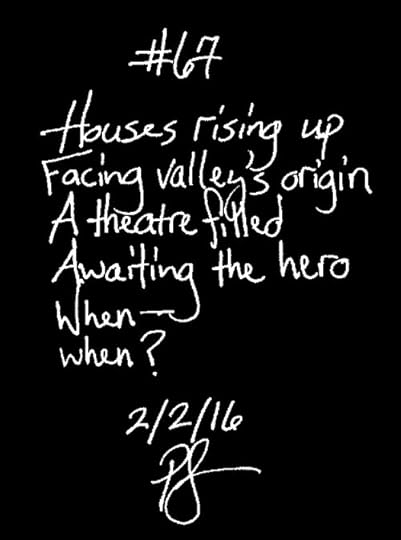 #67
Houses rising up
Facing valley's origin
A theatre filled
Awaiting the hero
When—
when?
2/2/16